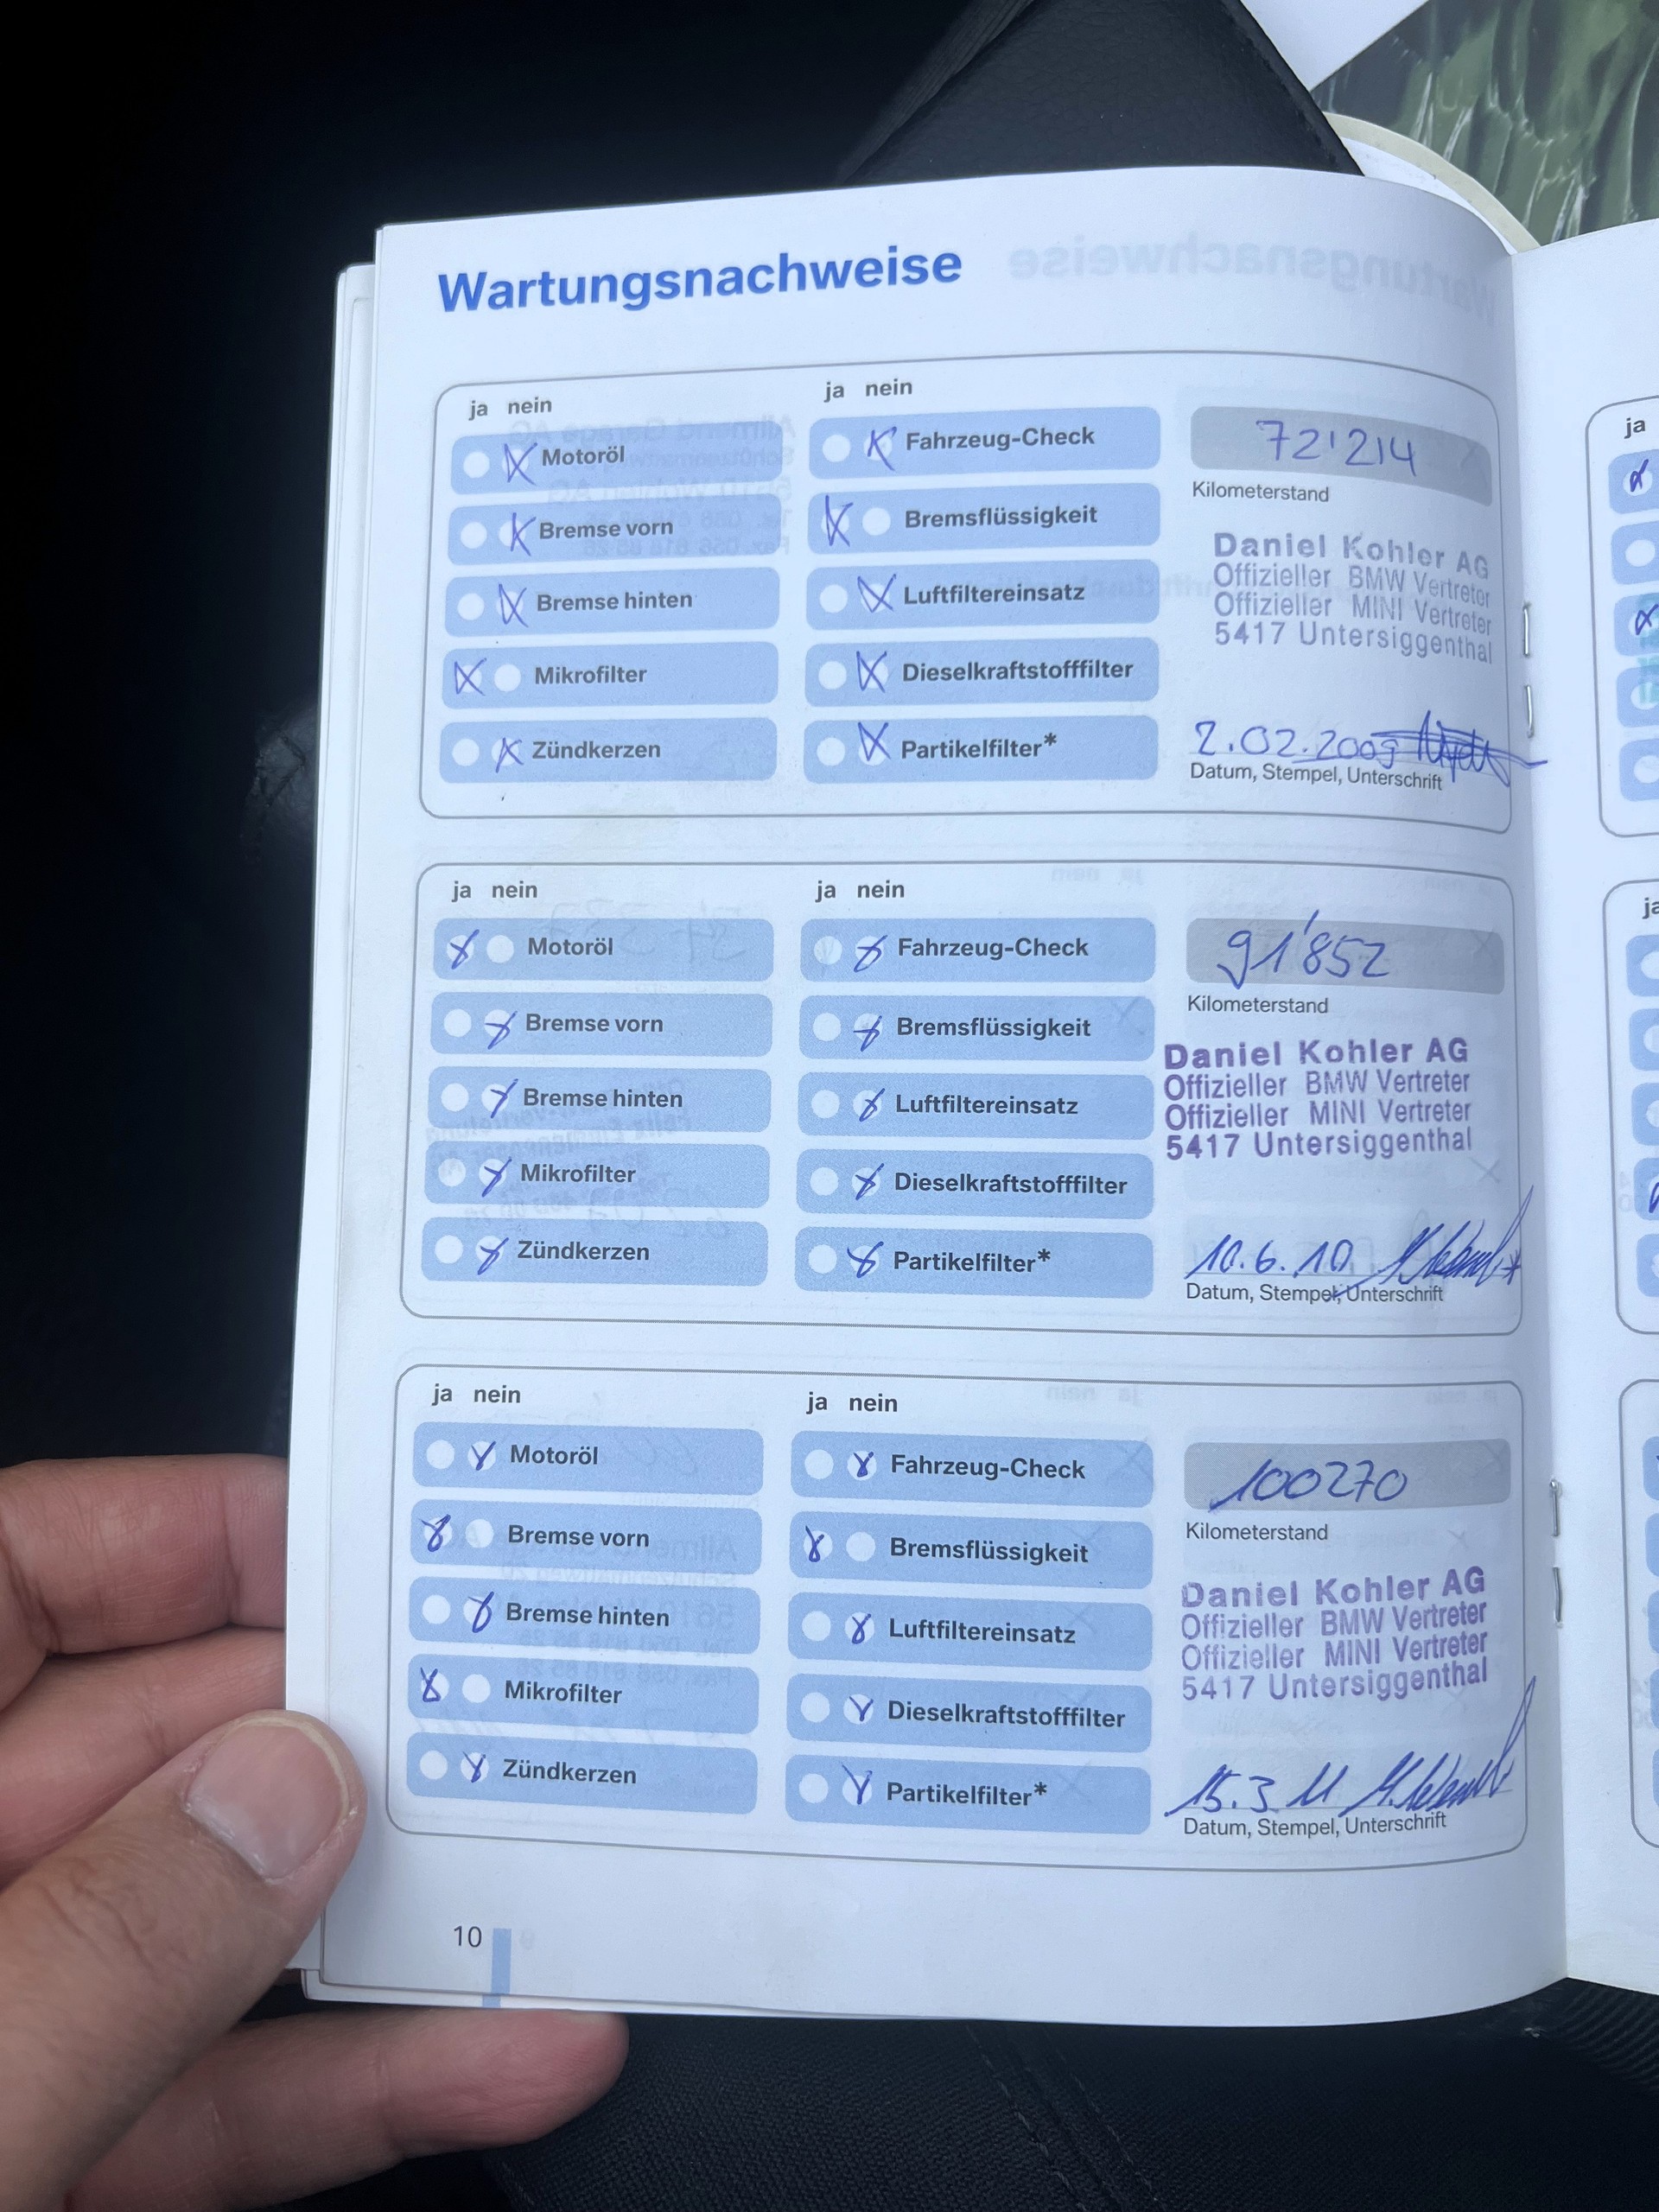 Wartungsnachweise
ja nein
Motoröl
Bremse vorn
Bremse hinten
Mikrofilter
Zündkerzen
ja nein
Fahrzeug-Check
Bremsflüssigkeit
Luftfiltereinsatz
Dieselkraftstofffilter
Partikelfilter*
72'214
Kilometerstand
Daniel Kohler AG
Offizieller BMW Vertreter
Offizieller MINI Vertreter
5417 Untersiggenthal
2.02.2009
Datum, Stempel, Unterschrift
ja nein
Motoröl
Bremse vorn
Bremse hinten
Mikrofilter
Zündkerzen
ja nein
Fahrzeug-Check
Bremsflüssigkeit
Luftfiltereinsatz
Dieselkraftstofffilter
Partikelfilter*
91'852
Kilometerstand
Daniel Kohler AG
Offizieller BMW Vertreter
Offizieller MINI Vertreter
5417 Untersiggenthal
10.6.10
Datum, Stempel, Unterschrift
ja nein
Motoröl
Bremse vorn
Bremse hinten
Mikrofilter
Zündkerzen
ja nein
Fahrzeug-Check
Bremsflüssigkeit
Luftfiltereinsatz
Dieselkraftstofffilter
Partikelfilter*
100270
Kilometerstand
Daniel Kohler AG
Offizieller BMW Vertreter
Offizieller MINI Vertreter
5417 Untersiggenthal
15.3 11
Datum, Stempel, Unterschrift
10
ja